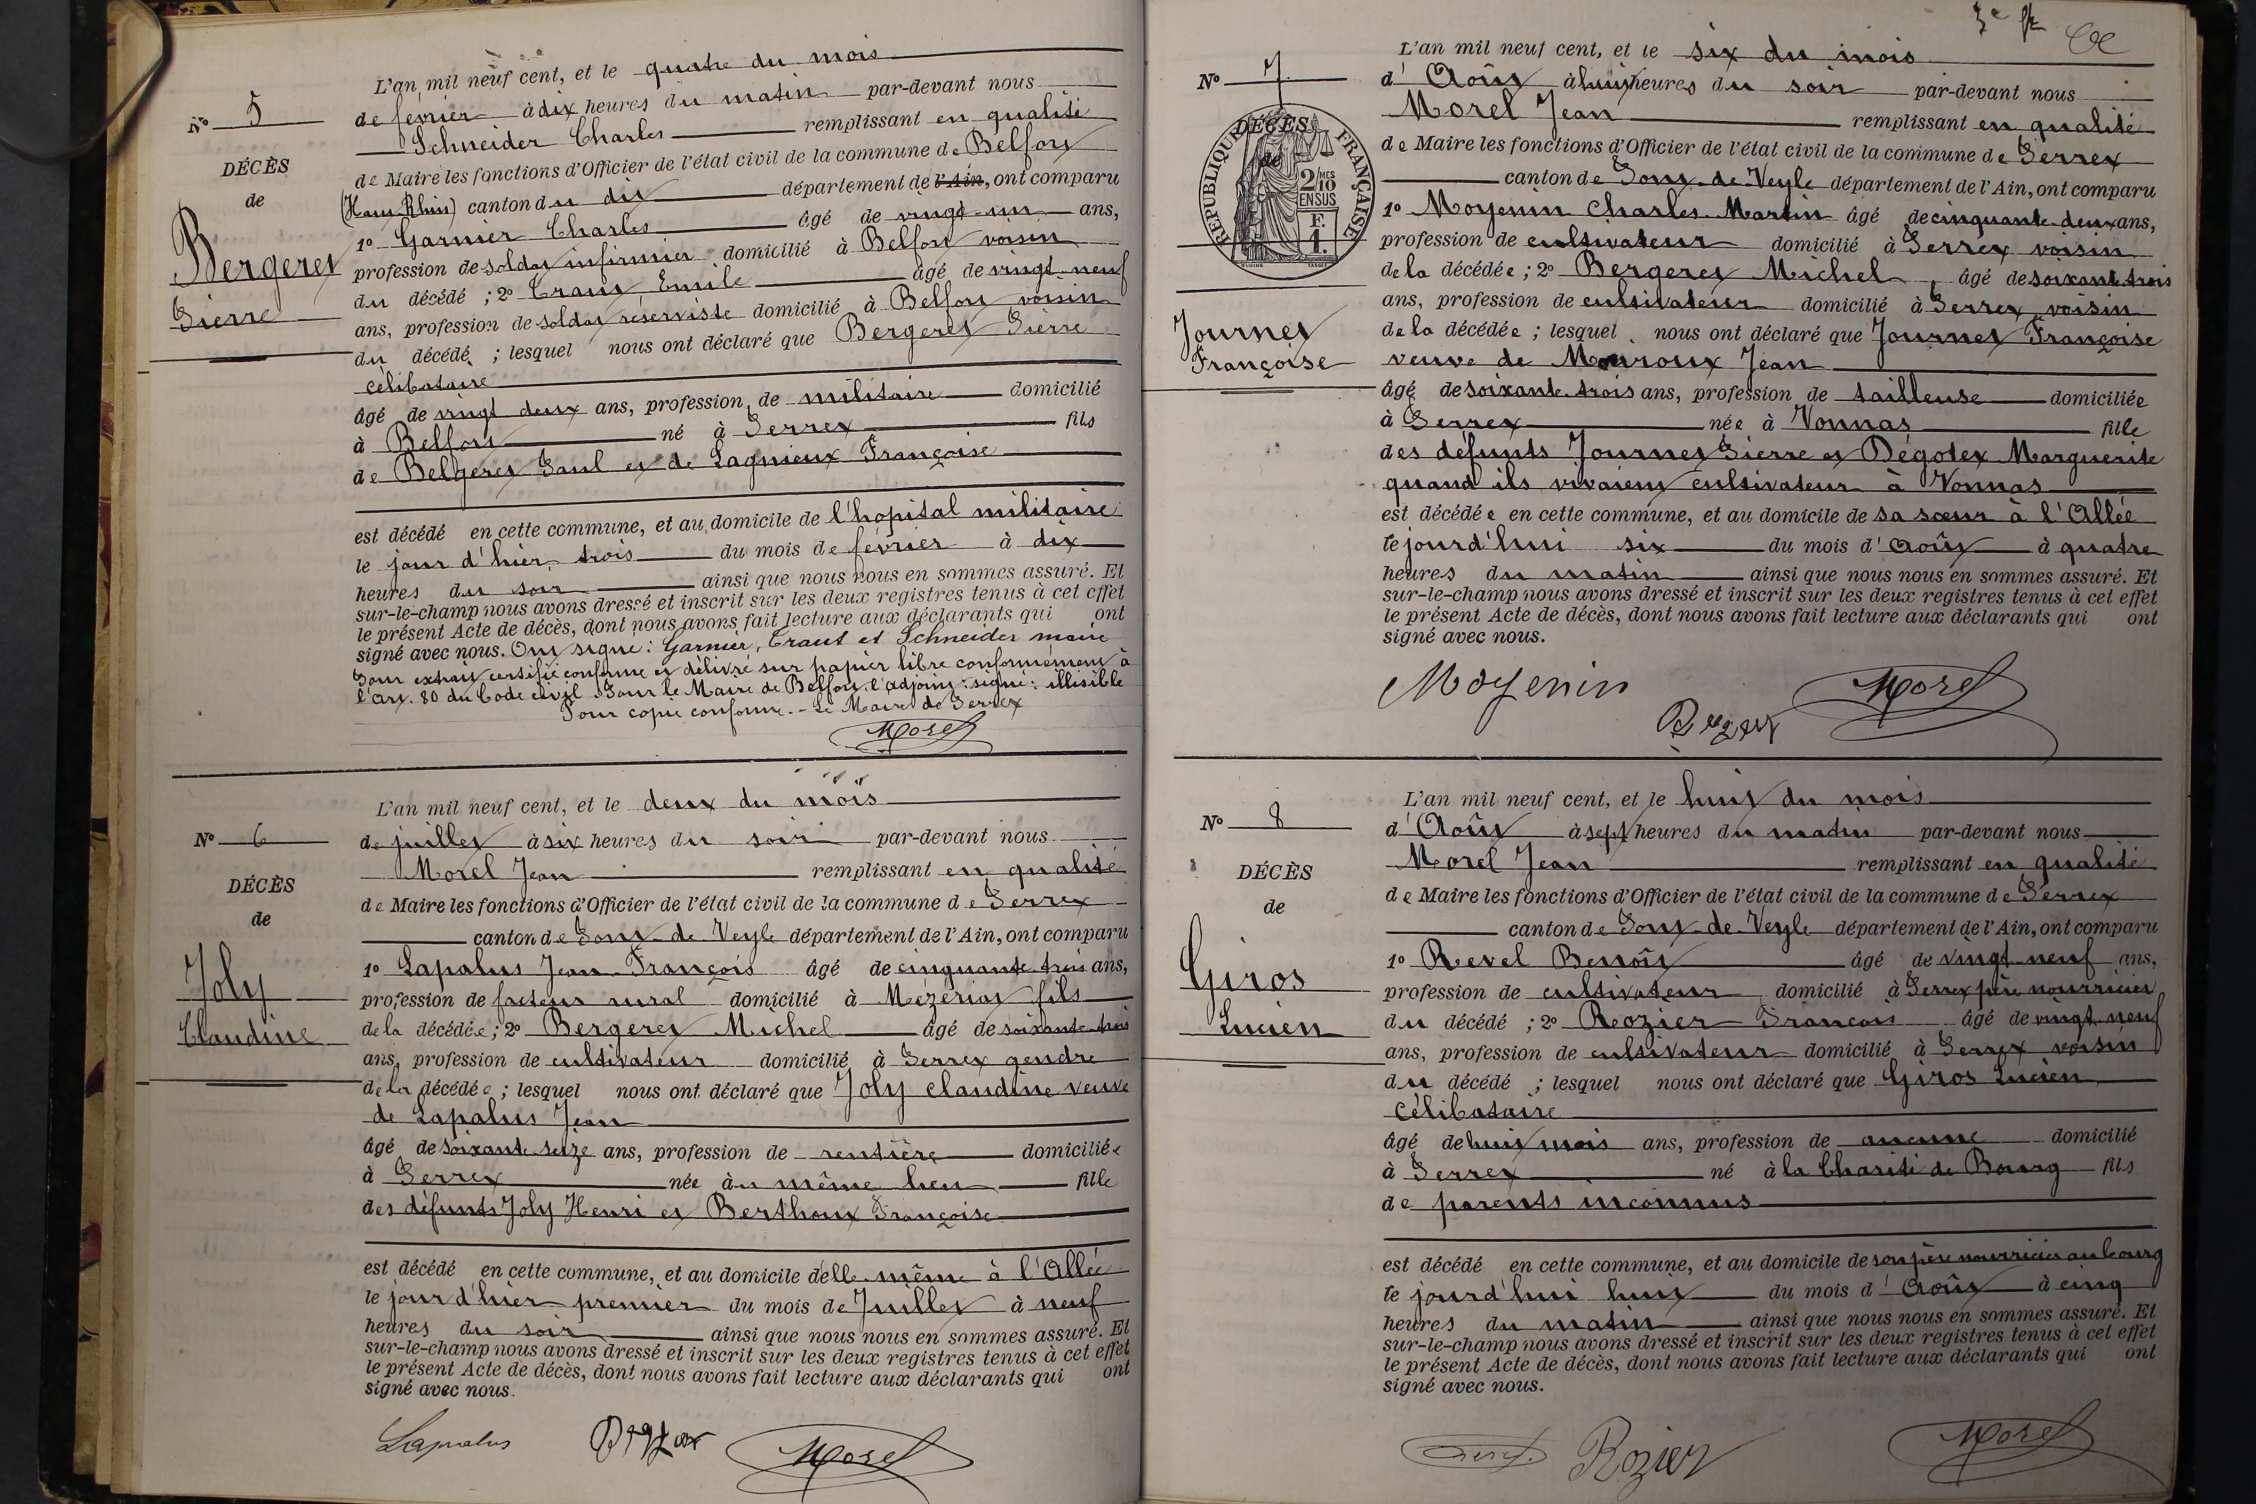 L'an mil neuf cent, et le quatre du mois
Nº 5
de février à dix heures du matin par-devant nous
Schneider Charles remplissant en qualité
DÉCÈS
de Maire les fonctions d'Officier de l'état civil de la commune de Belfort
de
(Haut-Rhin) canton du dit département de l'Ain, ont comparu
1º Garnier Charles âgé de vingt-un ans,
Bergeret
profession de soldat infirmier domicilié à Belfort voisin
du décédé ; 2º Traut Emile âgé de vingt-neuf
Pierre
ans, profession de soldat réserviste domicilié à Belfort voisin
du décédé ; lesquel nous ont déclaré que Bergeret Pierre
célibataire
âgé de vingt deux ans, profession de militaire domicilié
à Belfort né à Perrex fils
de Belgeret Paul et de Lagnieux Françoise
est décédé en cette commune, et au domicile de l'hopital militaire
le jour d'hier trois du mois de février à dix
heures du soir ainsi que nous nous en sommes assuré. Et
sur-le-champ nous avons dressé et inscrit sur les deux registres tenus à cet effet
le présent Acte de décès, dont nous avons fait lecture aux déclarants qui ont
signé avec nous. Ont signé : Garnier, Traut et Schneider maire
Pour extrait certifié conforme et délivré sur papier libre conformément à
l'art. 80 du Code civil Pour le Maire de Belfort, l'adjoint : signé : illisible
Pour copie conforme. - Le Maire de Perrex
Morel
L'an mil neuf cent, et le deux du mois
Nº 6
de juillet à six heures du soir par-devant nous
Morel Jean remplissant en qualité
DÉCÈS
de Maire les fonctions d'Officier de l'état civil de la commune de Perrex
de
canton de Pont-de-Veyle département de l'Ain, ont comparu
1º Lapalus Jean François âgé de cinquante-trois ans,
Joly
profession de facteur rural domicilié à Mézériat fils
de la décédée ; 2º Bergeret Michel âgé de soixante-trois
Claudine
ans, profession de cultivateur domicilié à Perrex gendre
de la décédée ; lesquel nous ont déclaré que Joly Claudine veuve
de Lapalus Jean
âgé de soixante-seize ans, profession de rentière domiciliée
à Perrex née au même lieu fille
des défunts Joly Henri et Berthoux Françoise
est décédé en cette commune, et au domicile d'elle-même à l'Allée
le jour d'hier premier du mois de Juillet à neuf
heures du soir ainsi que nous nous en sommes assuré. Et
sur-le-champ nous avons dressé et inscrit sur les deux registres tenus à cet effet
le présent Acte de décès, dont nous avons fait lecture aux déclarants qui ont
signé avec nous.
Lapalus Morel
3e
L'an mil neuf cent, et le six du mois
Nº 7
d' Août à huit heures du soir par-devant nous
Morel Jean remplissant en qualité
DÉCÈS
de
RÉPUBLIQUE FRANÇAISE
2/10 MES
EN SUS
F.
1.
de Maire les fonctions d'Officier de l'état civil de la commune de Perrex
canton de Pont-de-Veyle département de l'Ain, ont comparu
1º Moyenin Charles Martin âgé de cinquante-deux ans,
profession de cultivateur domicilié à Perrex voisin
de la décédée ; 2º Bergeret Michel, âgé de soixante-trois
ans, profession de cultivateur domicilié à Perrex voisin
Journet
de la décédée ; lesquel nous ont déclaré que Journet Françoise
Françoise
veuve de Mouroux Jean
âgé de soixante-trois ans, profession de tailleuse domiciliée
à Perrex née à Vonnas fille
des défunts Journet Pierre et Dégotex Marguerite
quand ils vivaient cultivateur à Vonnas
est décédée en cette commune, et au domicile de sa sœur à l'Allée
le jourd'hui six du mois d' Août à quatre
heures du matin ainsi que nous nous en sommes assuré. Et
sur-le-champ nous avons dressé et inscrit sur les deux registres tenus à cet effet
le présent Acte de décès, dont nous avons fait lecture aux déclarants qui ont
signé avec nous.
Moyenin Morel
L'an mil neuf cent, et le huit du mois
Nº 8
d' Août à sept heures du matin par-devant nous
Morel Jean remplissant en qualité
DÉCÈS
de Maire les fonctions d'Officier de l'état civil de la commune de Perrex
de
canton de Pont-de-Veyle département de l'Ain, ont comparu
1º Revel Benoît âgé de vingt-neuf ans,
Giros
profession de cultivateur domicilié à Perrex père nourricier
du décédé ; 2º Rozier François âgé de vingt-neuf
Lucien
ans, profession de cultivateur domicilié à Perrex voisin
du décédé ; lesquel nous ont déclaré que Giros Lucien
célibataire
âgé de huit mois ans, profession de aucune domicilié
à Perrex né à la Charité de Bourg fils
de parents inconnus
est décédé en cette commune, et au domicile de son père nourricier au bourg
le jourd'hui huit du mois d' Août à cinq
heures du matin ainsi que nous nous en sommes assuré. Et
sur-le-champ nous avons dressé et inscrit sur les deux registres tenus à cet effet
le présent Acte de décès, dont nous avons fait lecture aux déclarants qui ont
signé avec nous.
Rozier Morel